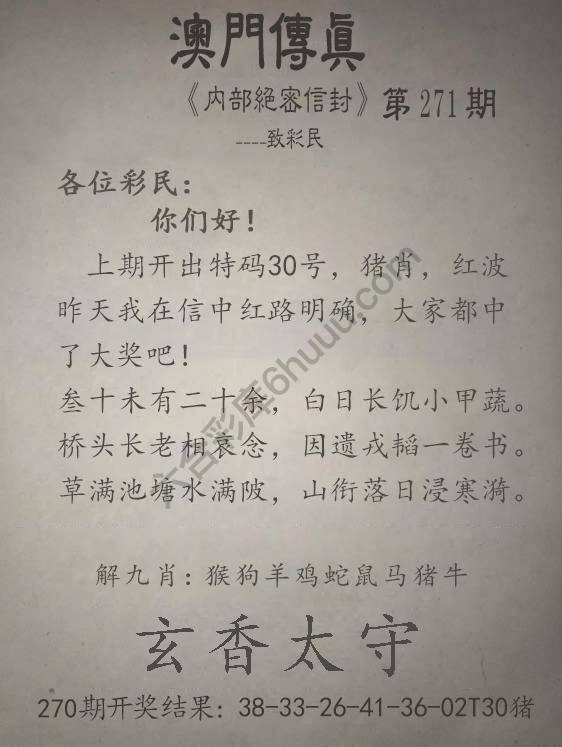 澳門傳眞
《内部絕密信封》第271期
----致彩民
各位彩民：
你们好！
上期开出特码30号，猪肖，红波
昨天我在信中红路明确，大家都中
了大奖吧！
叁十未有二十余，白日长饥小甲蔬。
桥头长老相哀念，因遗戎韬一卷书。
草满池塘水满陂，山衔落日浸寒漪。
解九肖：猴狗羊鸡蛇鼠马猪牛
玄香太守
270期开奖结果：38-33-26-41-36-02T30猪
六合彩库6huuu.com